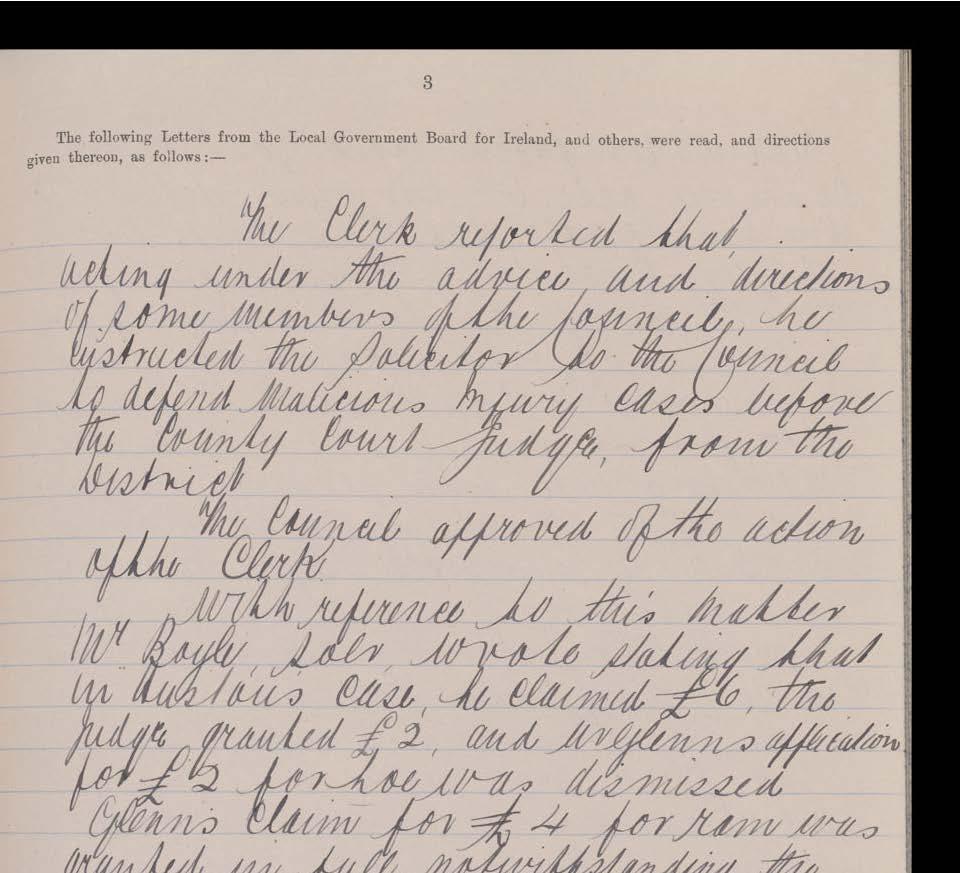 3
The following Letters from the Local Government Board for Ireland, and others, were read, and directions
given thereon, as follows:—
The Clerk reported that,
acting under the advice, and directions
of some members of the Council, he
instructed the Solicitor to the Council
to defend Malicious Injury Cases before
the County Court Judge, from the
District
The Council approved of the action
of the Clerk.
With reference to this matter
Mr Boyle, solr, wrote stating that
in case, he claimed £6, the
judge granted £2, and application
for £2 for hoe was dismissed
Glenns claim for £4 for ram was
granted in full notwithstanding the